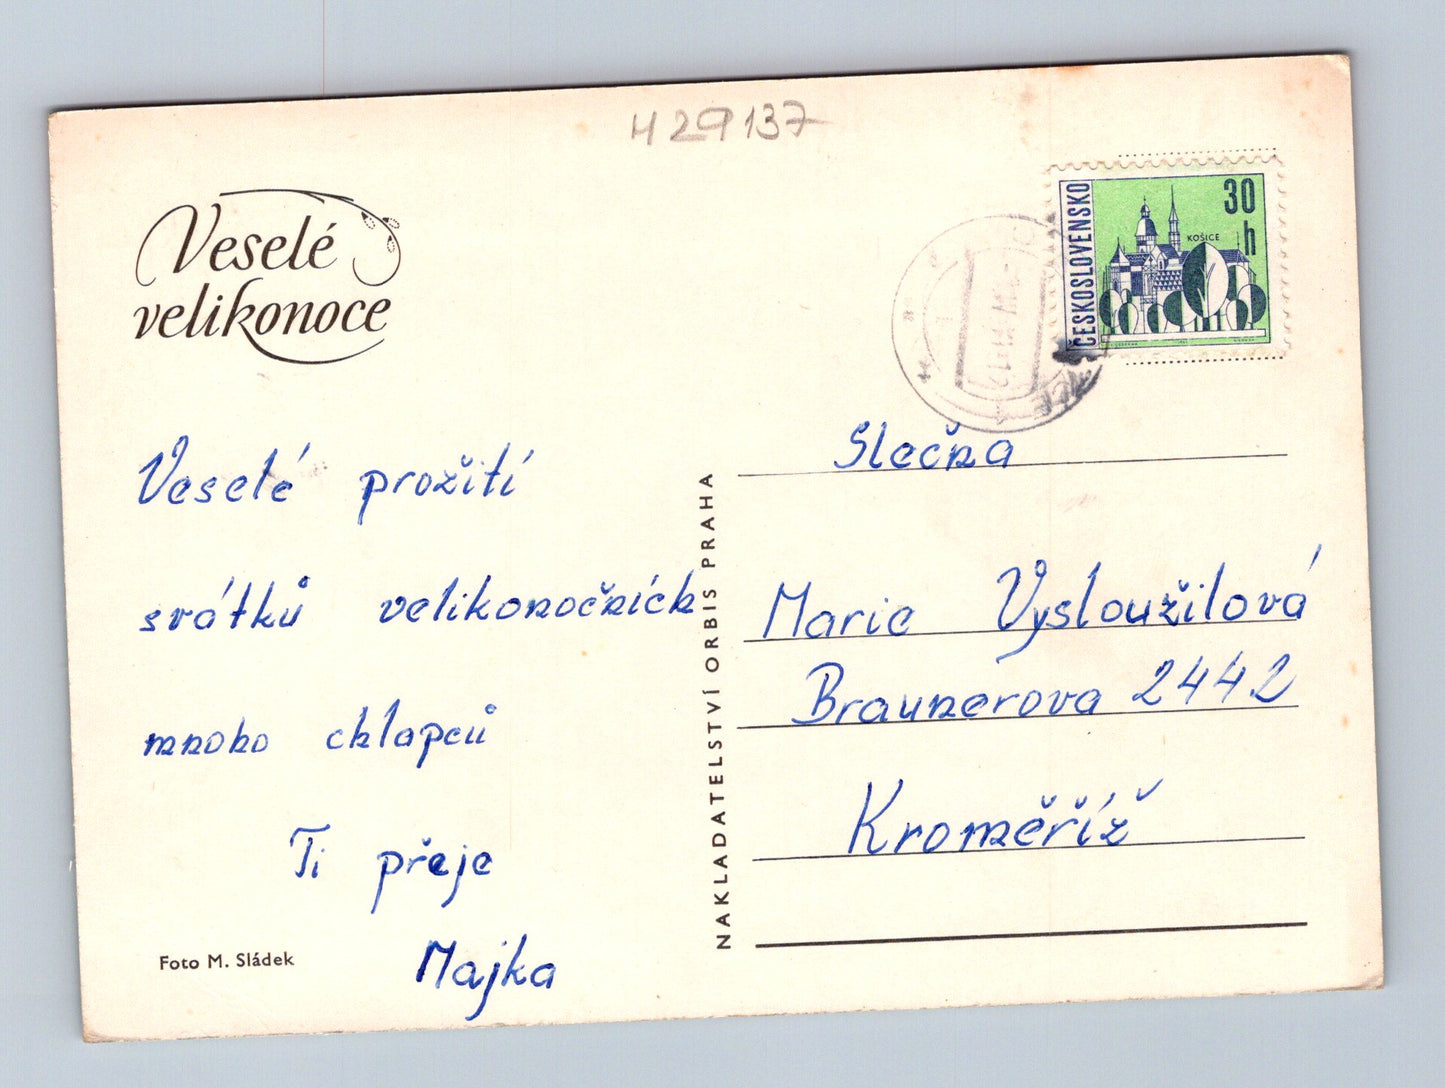 H29137
Veselé
velikonoce
ČESKOSLOVENSKO
30
h
KOŠICE
Veselé prožití
svátků velikonočních
mnoho chlapců
Ti přeje
Majka
Foto M. Sládek
NAKLADATELSTVÍ ORBIS PRAHA
Slečna
Marie Vysloužilová
Braunerova 2442
Kroměříž